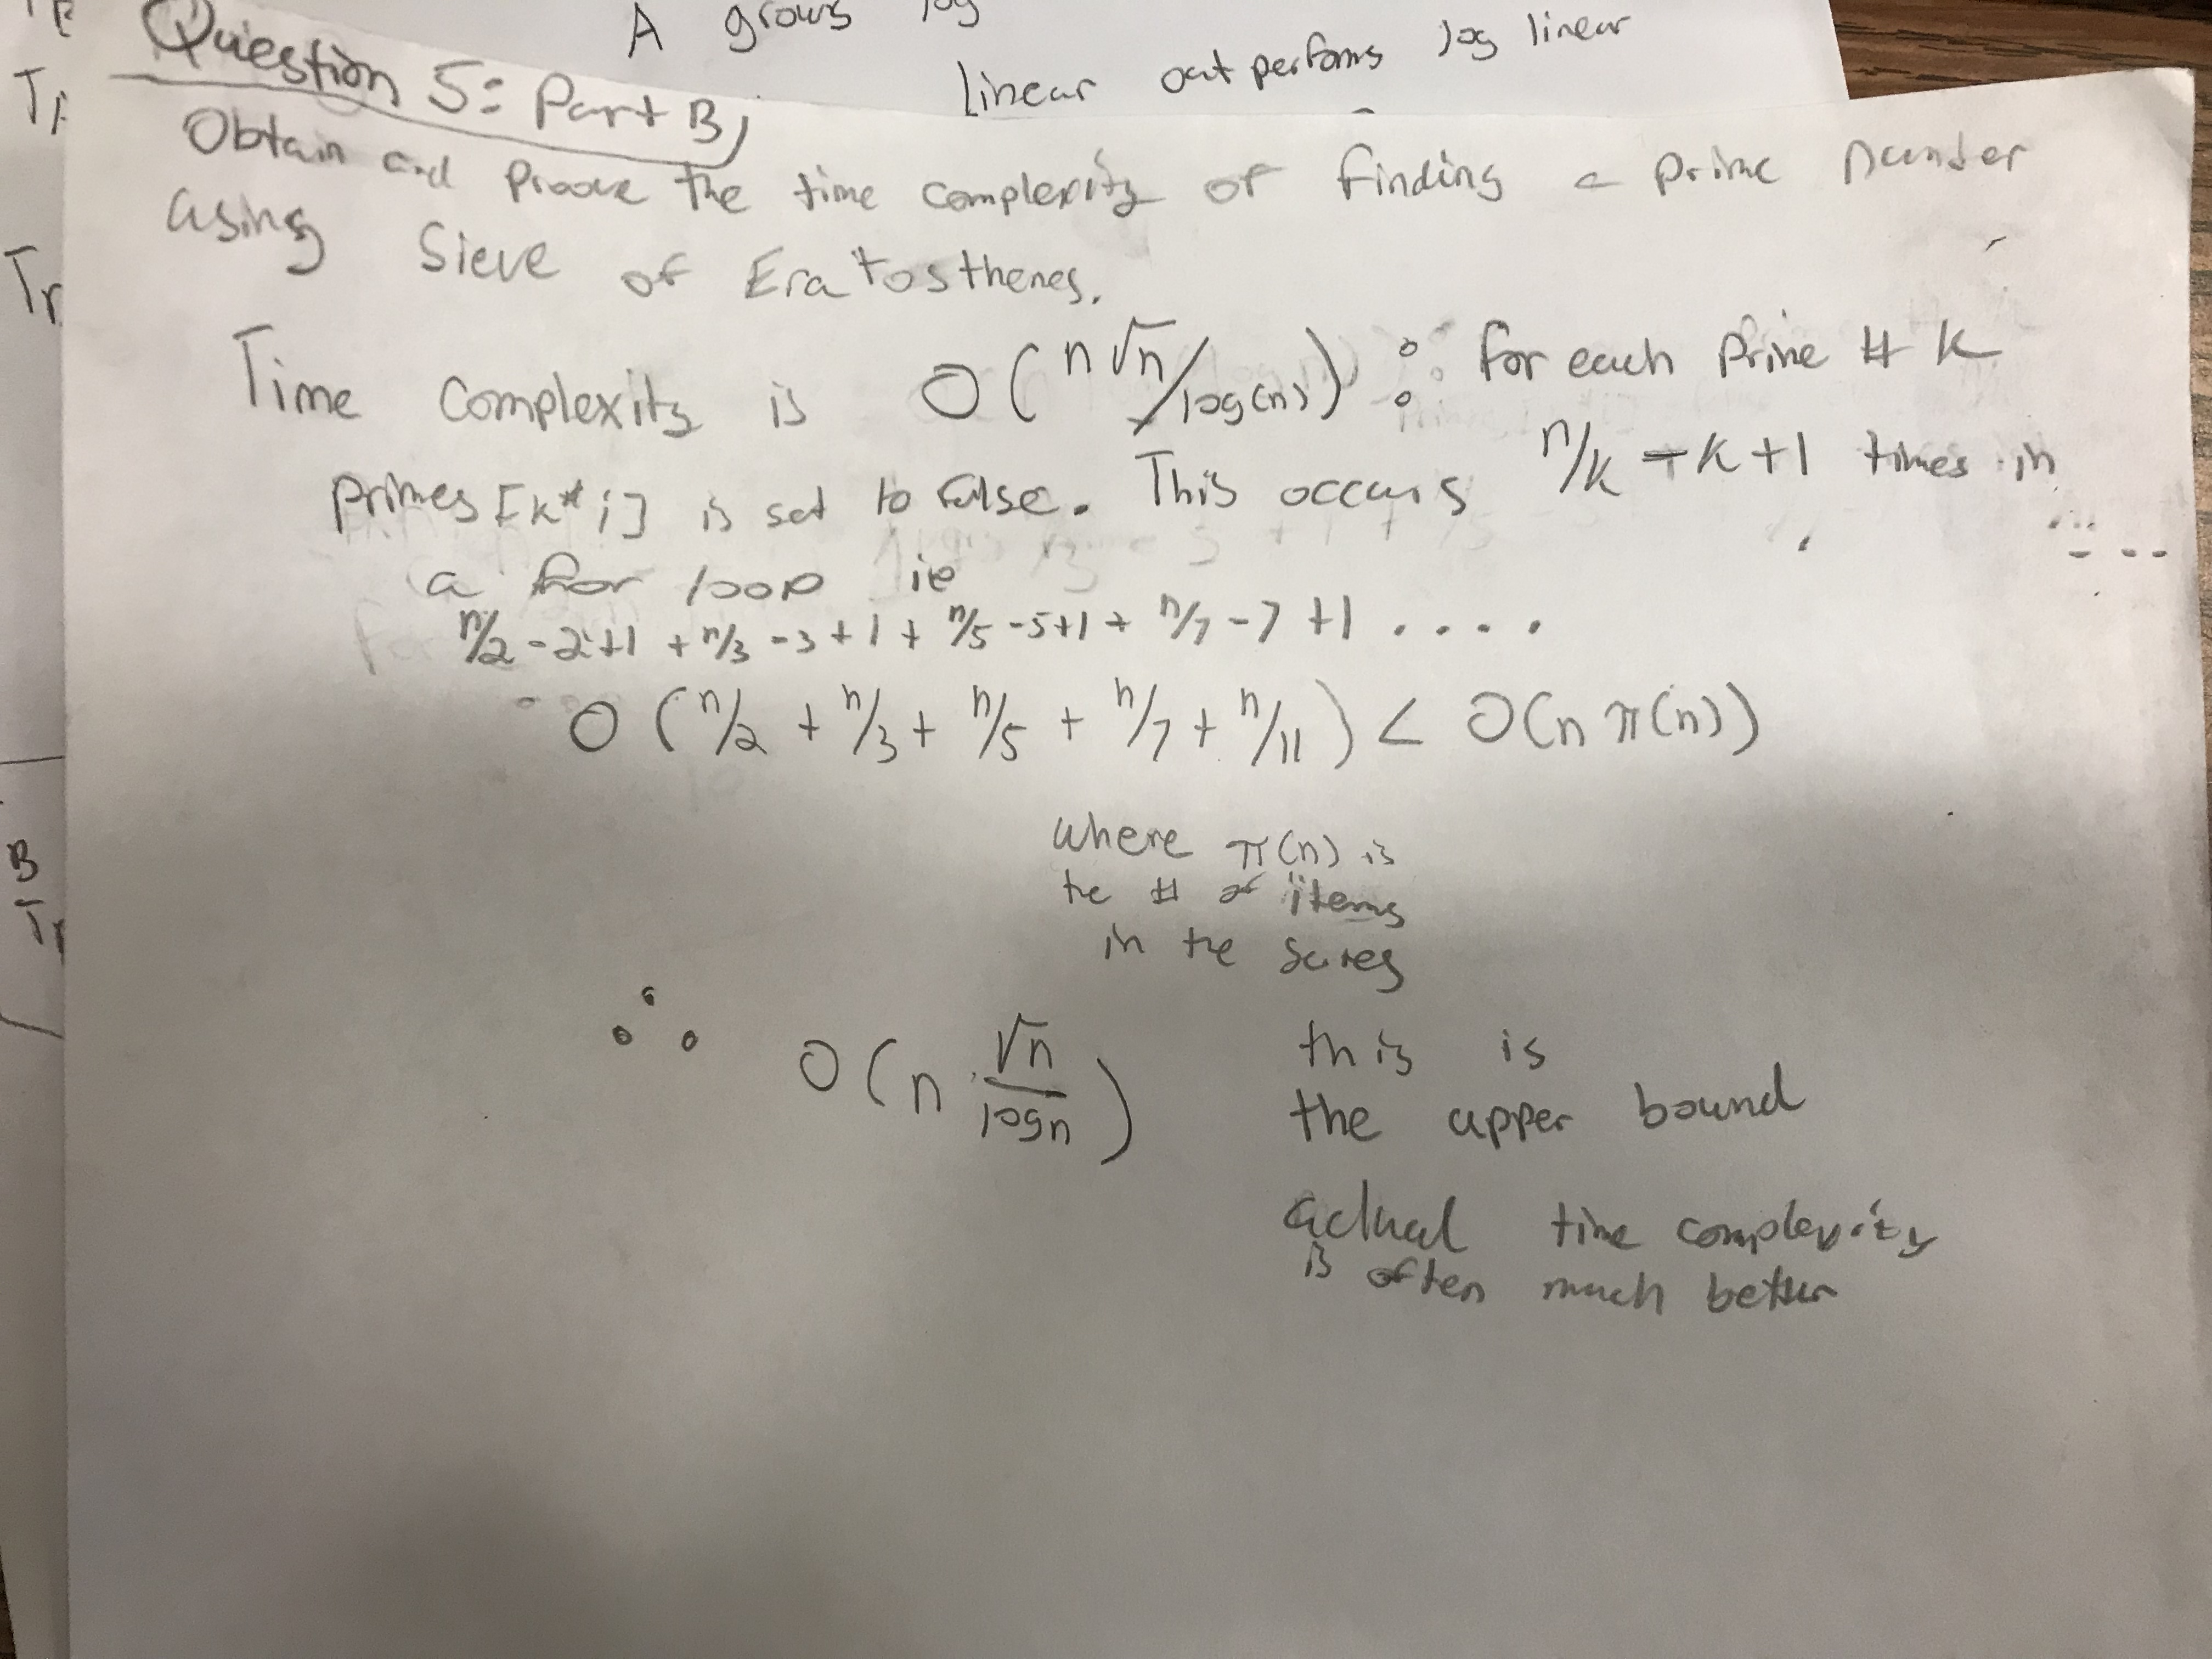 A grows log linear outperforms log linear
Question 5: Part B)
Obtain and Prove the time complexity of finding a prime number
using Sieve of Eratosthenes.
Time Complexity is O(n√n/log(n)) ∵ for each Prime # k
Primes[k*i] is set to false. This occurs n/k - k + 1 times in
a for loop ie
n/2 - 2+1 + n/3 - 3+1 + n/5 - 5+1 + n/7 - 7 +1 ....
O(n/2 + n/3 + n/5 + n/7 + n/11) < O(n π(n))
where π(n) is
the # of items
in the series
∴ O(n · √n/logn) this is
the upper bound
actual time complexity
is often much better
B
Tr
Tr